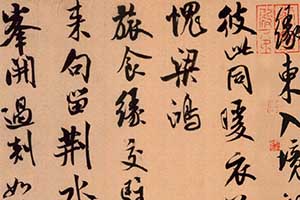 緣東入境
彼此同暖衣
愧梁鴻
旅食緣交駐
來句留荊水
峯開過剡如